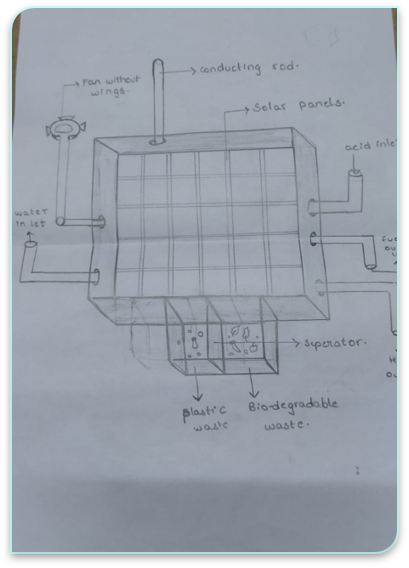 Fan without
wings.
conducting rod.
Solar panels.
acid inle
water
in let
seperator.
plastic
waste
Bio-degradable
waste.